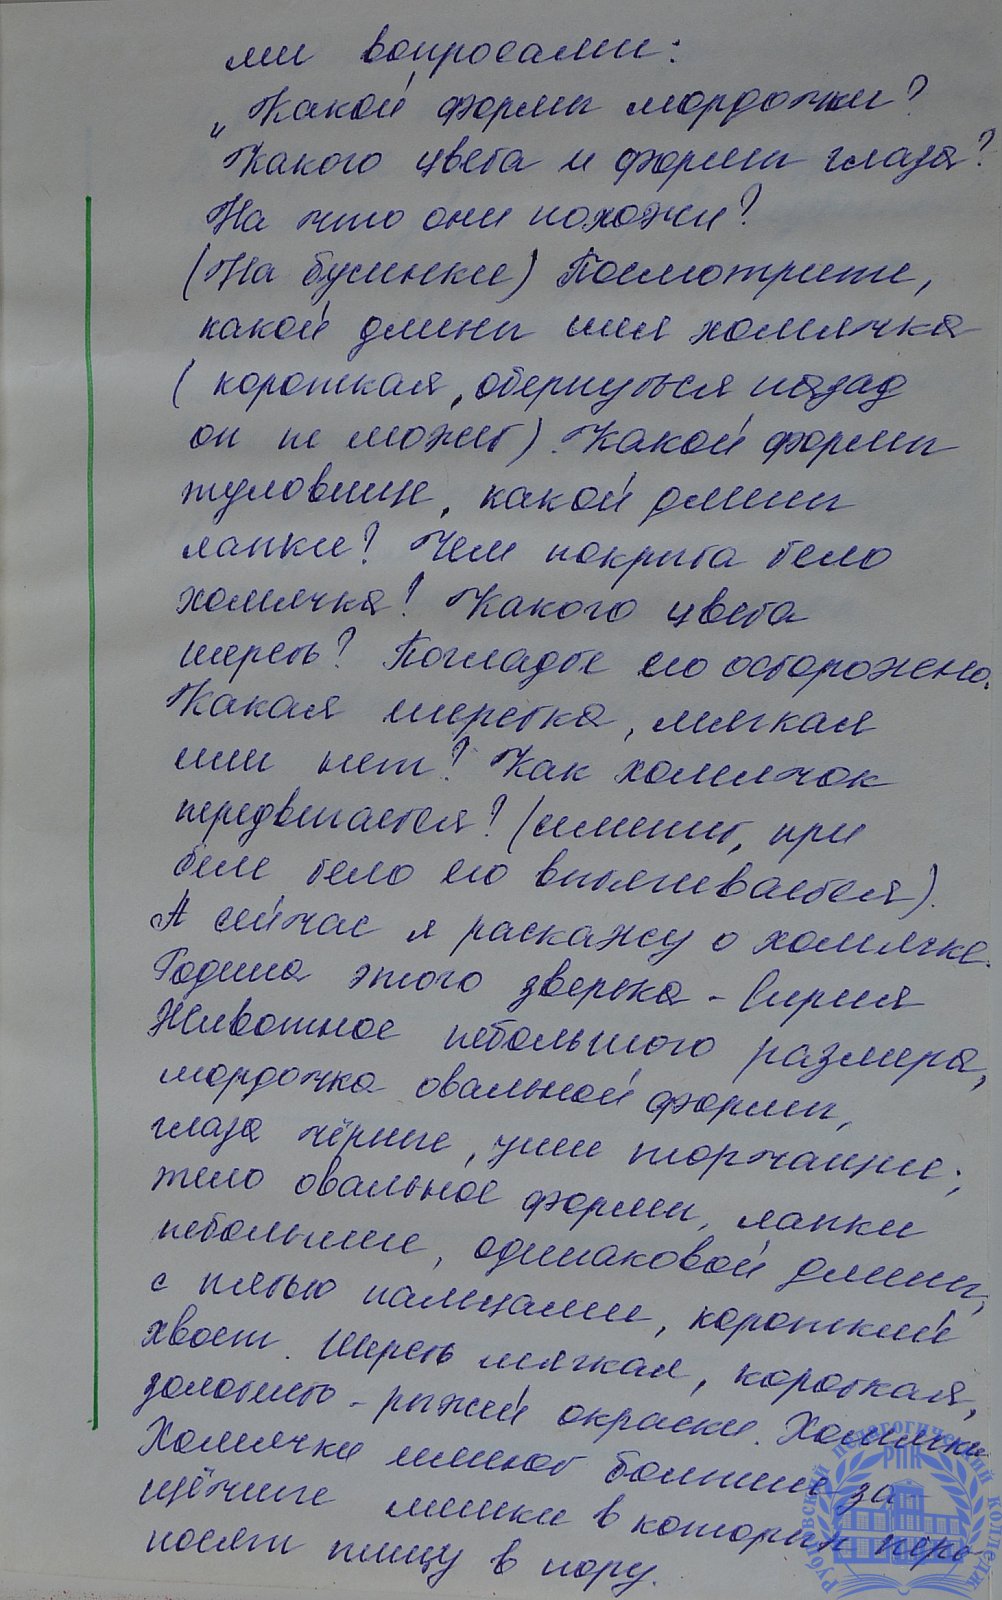 ми вопросами:
„Какой формы мордочки?
Какого цвета и формы глаза?
На что они похожи?
(На бусинки) Посмотрите,
какой длины шея хомячка
(короткая, обернуться назад
он не может). Какой формы
туловище, какой длины
лапки? Чем покрыта тело
хомячка? Какого цвета
шерсть? Погладьте его осторожено.
Какая шерстка, мягкая
или нет? Как хомячок
передвигается? (семенит, при
беге тело его вытягивается).
А сейчас я раскажу о хомячке.
Родина этого зверька - Сирия
Животное небольшого размера,
мордочка овальной формы,
глаза чёрные, уши торчащие;
тело овальное формы, лапки
небольшие, одинаковой длины,
с пятью пальцами, короткий
хвост. Шерсть мягкая, короткая,
золотисто - рыжей окраски. Хомячки
Хомячки имеют большие за-
щёчные мешки в которых пере-
носят пищу в нору.
Рубцовский педагогический колледж
РПК